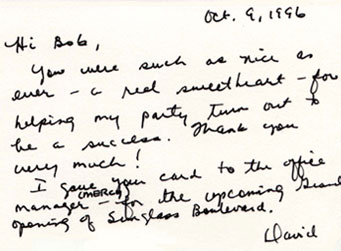 Oct. 9, 1996
Hi Bob,
You were such as nice as
ever - a real sweetheart - for
helping my party turn out to
be a success. Thank you
very much!
I gave your card to the office
(MERCY)
manager - for the upcoming Grand
opening of Sunglass Boulevard.
David